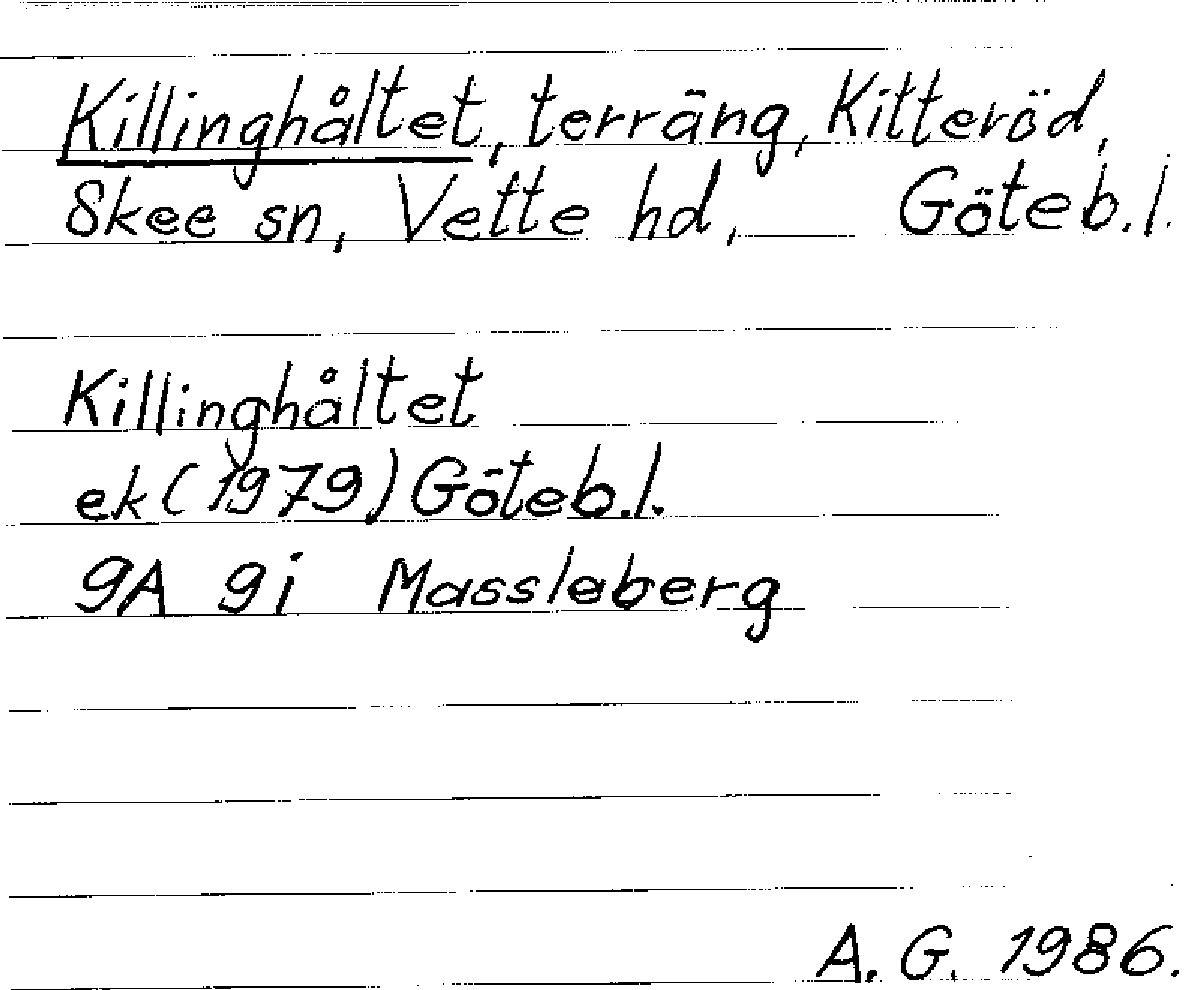 Killinghåltet, terräng, Kitteröd,
Skee sn, Vette hd, Göteb.l.
Killinghåltet
ek (1979) Göteb.l.
9A 9i Massleberg
A. G. 1986.